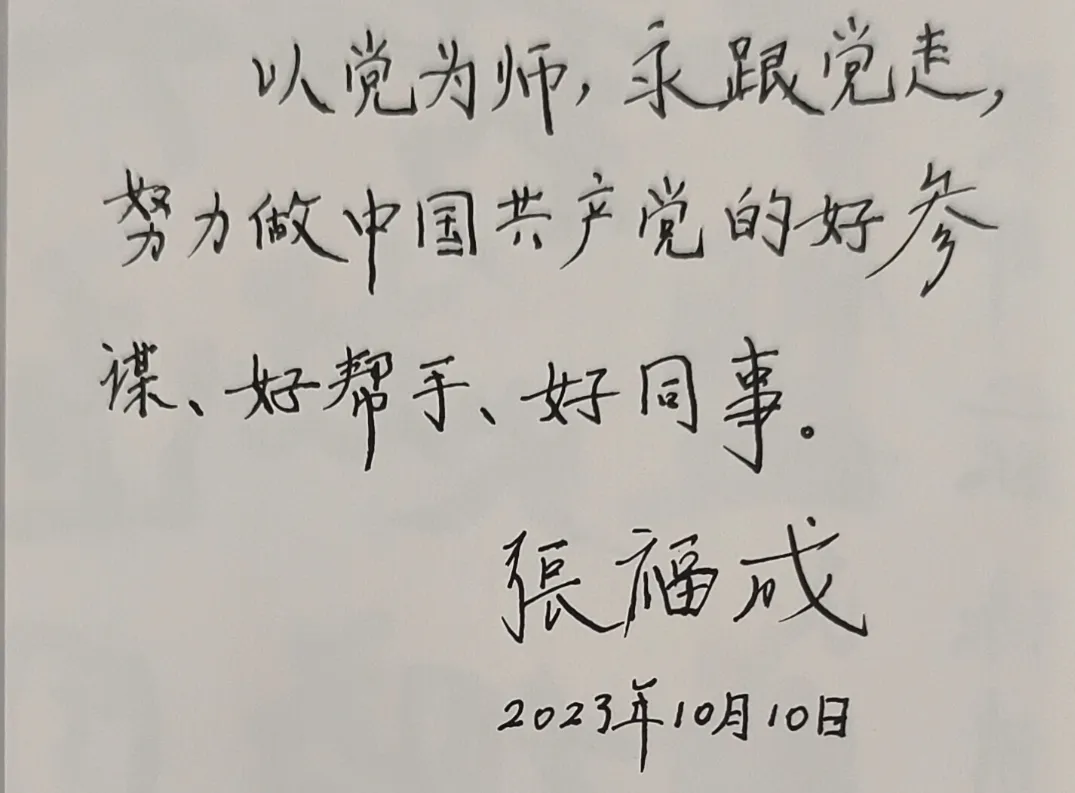 以党为师，永跟党走，
努力做中国共产党的好参
谋、好帮手、好同事。
張福成
2023年10月10日